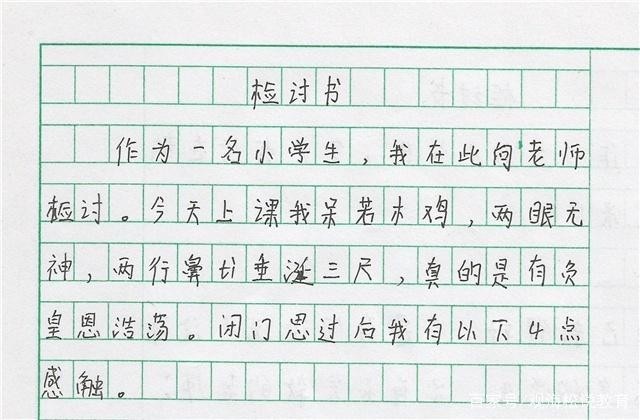 检讨书
作为一名小学生，我在此向老师
检讨。今天上课我呆若木鸡，两眼无
神，两行鼻ti垂涎三尺，真的是有负
皇恩浩荡。闭门思过后我有以下4点
感触。
百家号